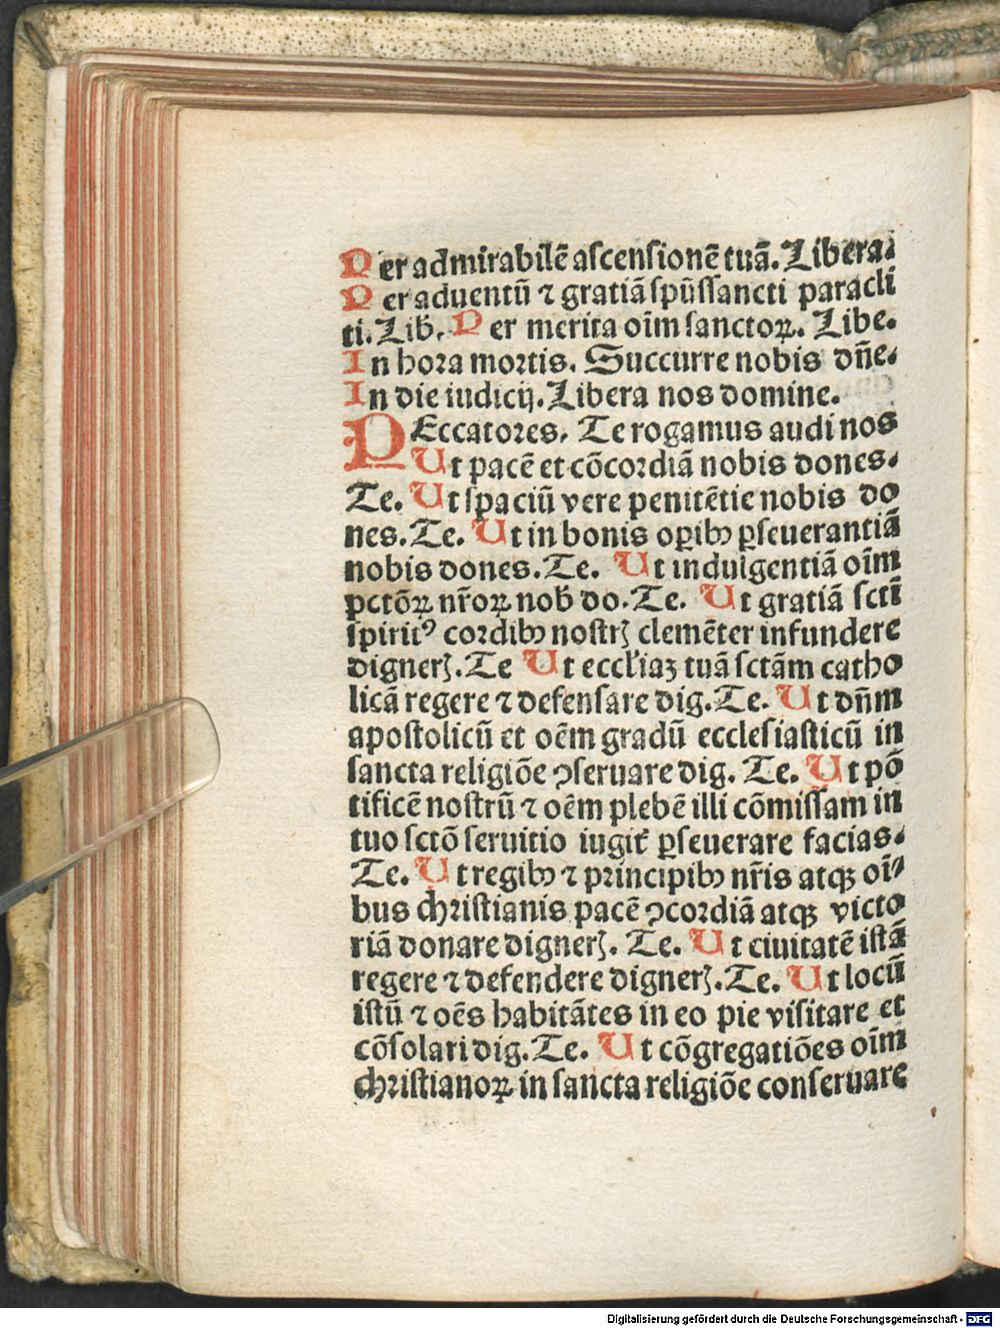 Per admirabilē aſcenſionē tuā. Libera.
Per aduentū ⁊ gratiā ſpūſſancti paracli
ti. Lib. Per merita oīm ſanctoꝝ. Libe.
In hora mortis. Succurre nobis dn̄e.
In die iudicij. Libera nos domine.
PEccatores. Te rogamus audi nos
Ut pacē et cōcordiā nobis dones.
Te. Ut ſpaciū vere penitētie nobis do
nes. Te. Ut in bonis oꝑibꝰ ꝑſeuerantiā
nobis dones. Te. Ut indulgentiā oīm
pctōꝝ nr̄oꝝ nob̄ do. Te. Ut gratiā ſctī
ſpirit⁹ cordibꝰ noſtrꝭ clemēter infundere
dignerꝭ. Te Ut eccl'iaꝫ tuā ſctām catho
licā regere ⁊ defenſare dig. Te. Ut dn̄m
apoſtolicū et oēm gradū eccleſiaſticū in
ſancta religiōe ꝯſeruare dig. Te. Ut pō
tificē noſtrū ⁊ oēm plebē illi cōmiſſam in
tuo ſctō ſeruitio iugit̄ ꝑſeuerare facias.
Te. Ut regibꝰ ⁊ principibꝰ nr̄is atqꝫ oī⸗
bus chriſtianis pacē ꝯcordiā atqꝫ victo
riā donare dignerꝭ. Te. Ut ciuitatē iſtā
regere ⁊ defendere dignerꝭ. Te. Ut locū
iſtū ⁊ oēs habitātes in eo pie viſitare et
cōſolari dig. Te. Ut cōgregatiōes oīm
chriſtianoꝝ in ſancta religiōe conſeruare
Digitalisierung gefördert durch die Deutsche Forschungsgemeinschaft - DFG